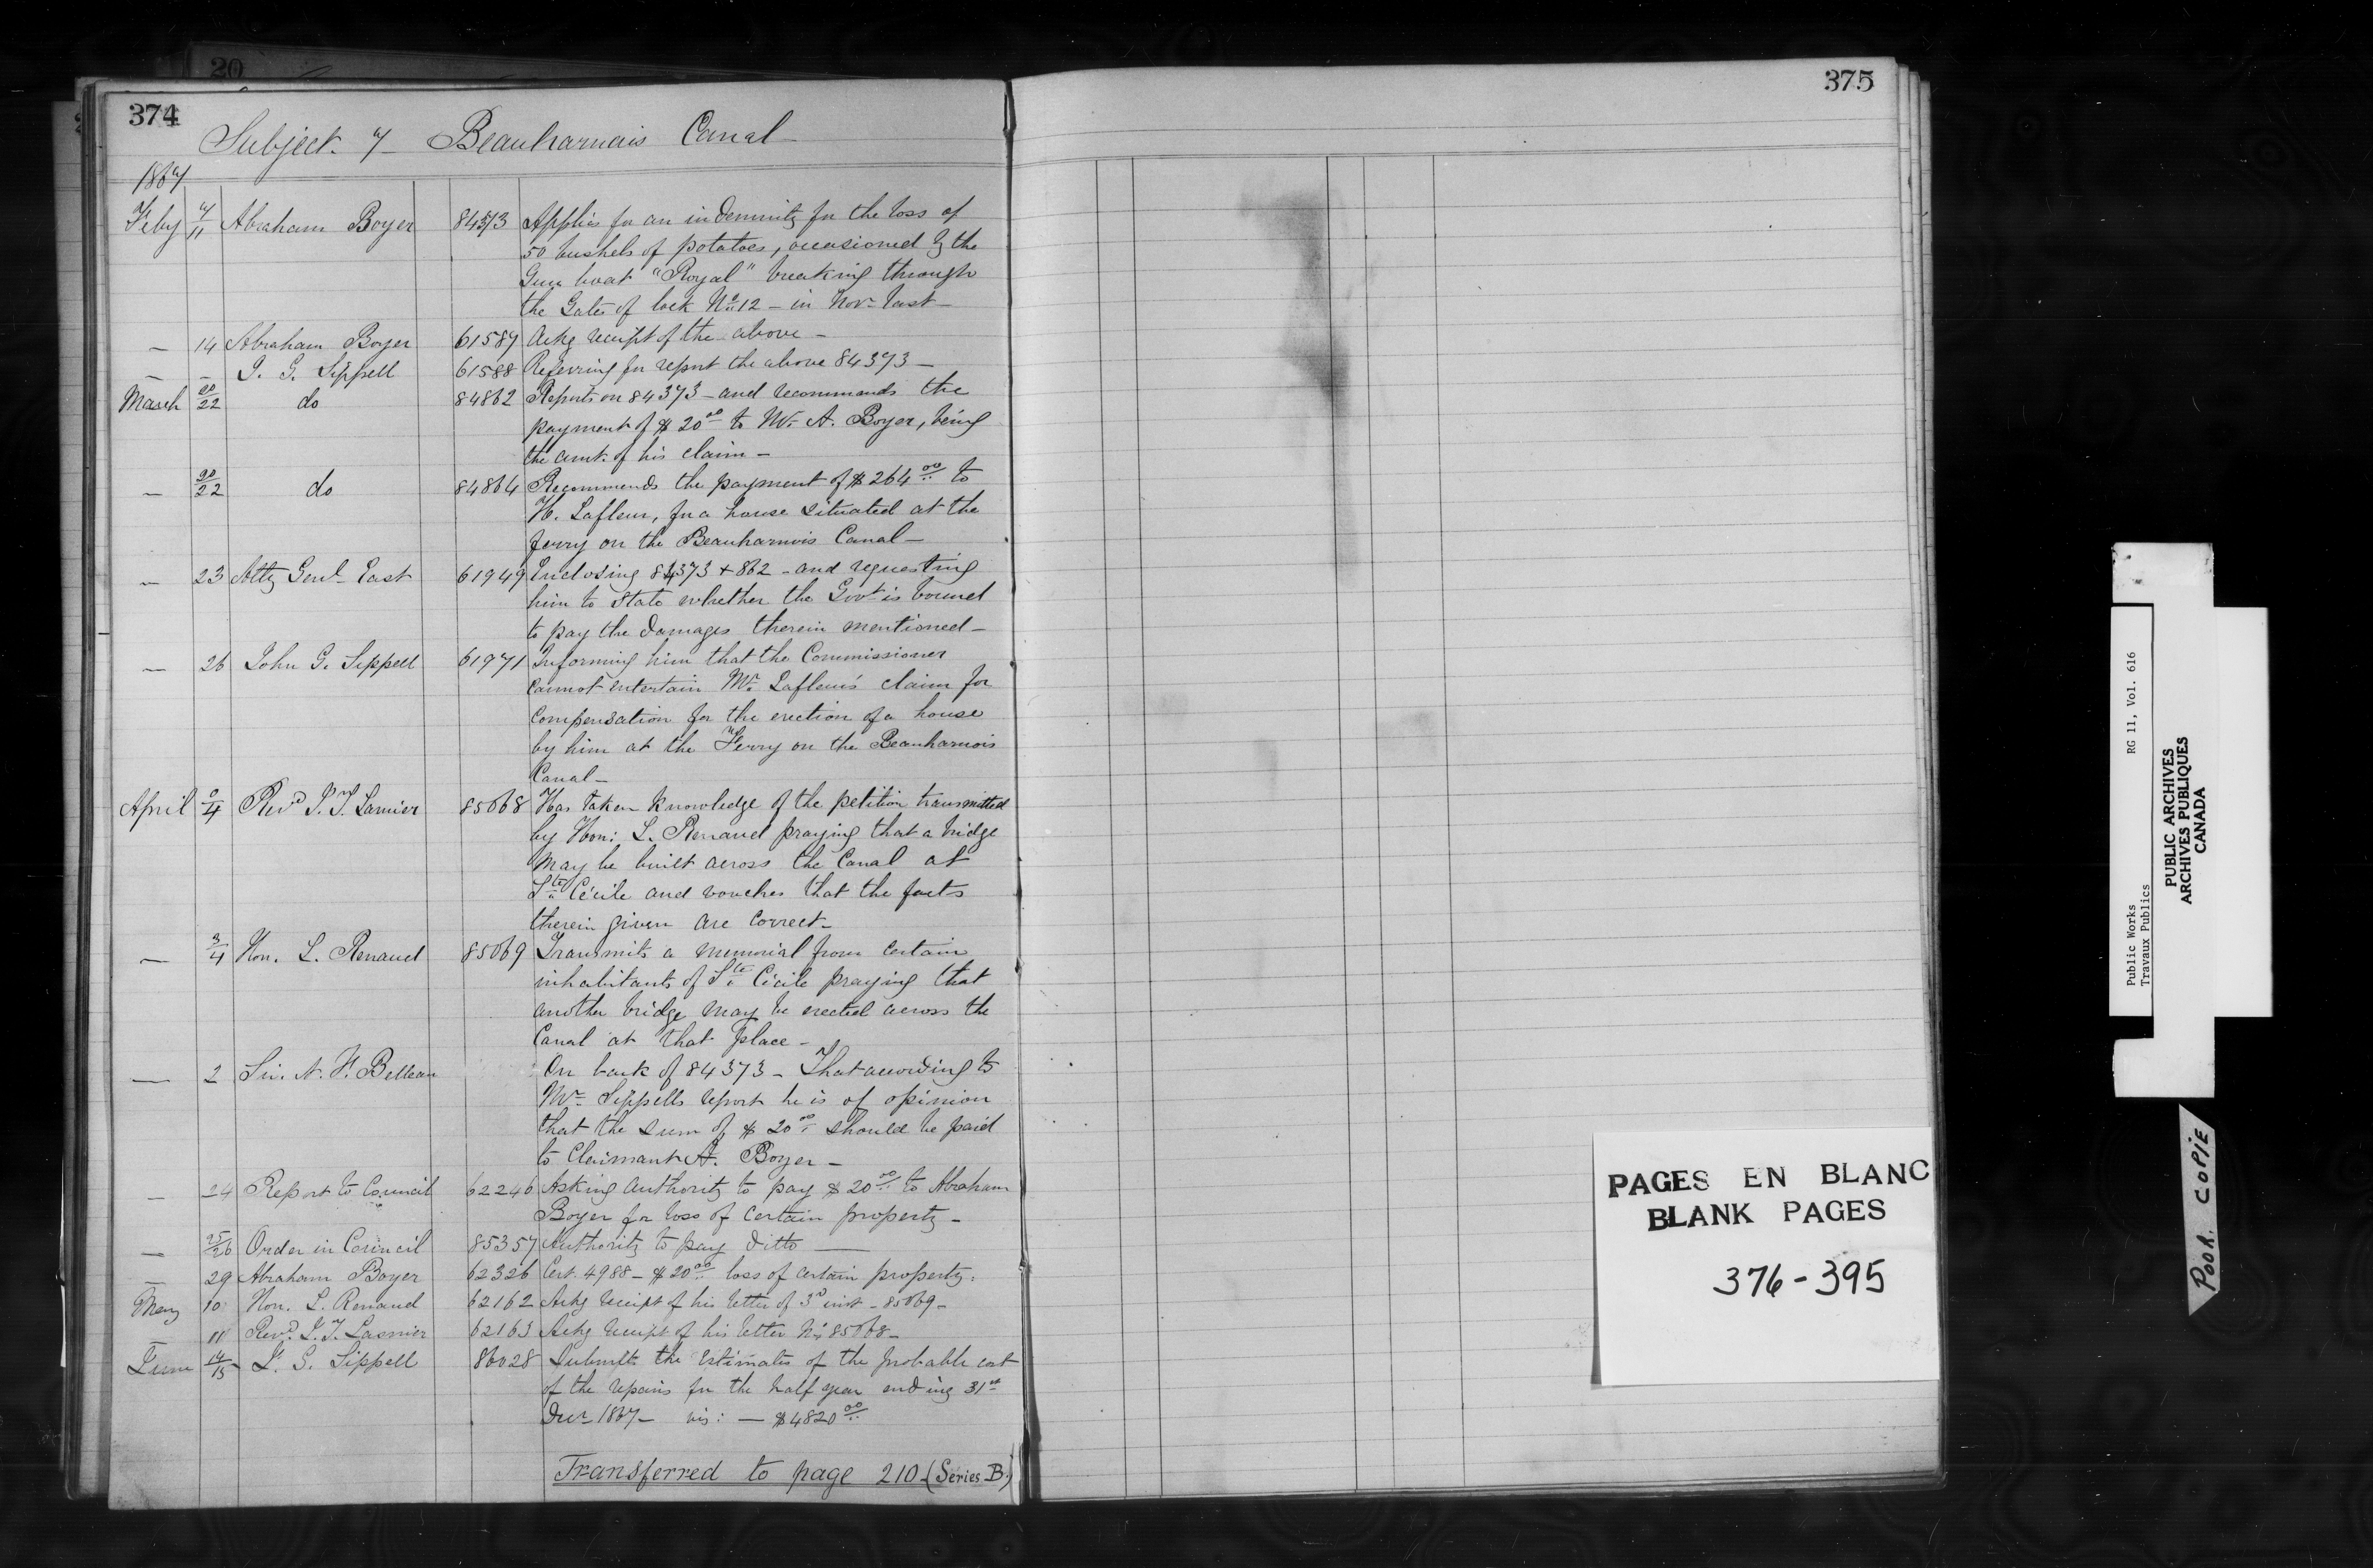 20
374
375
Subject. 7 — Beauharnais Canal
1867
Feby 7/11 Abraham Boyer 84373 Applies for an indemnity for the loss of
50 bushels of potatoes, occasioned by the
Gun boat "Royal" breaking through
the Gates of lock No. 12 — in Novr last —
— 14 Abraham Boyer 61587 Ackg receipt of the above —
— — J. G. Sippell 61588 Referring for report the above 84373 —
March 20/22 do 84862 Reports on 84373 — and recommends the
payment of $20 00 to Mr. A. Boyer, being
the amt. of his claim —
— 20/22 do 84864 Recommends the payment of $264 00 to
H. Lafleur, for a house situated at the
ferry on the Beauharnois Canal —
— 23 Atty Genl East 61949 Enclosing 84373 + 862 — and requesting
him to state whether the Govt is bound
to pay the damages therein mentioned —
— 26 John G. Sippell 61971 Informing him that the Commissioner
cannot entertain Mr. Lafleur's claim for
compensation for the erection of a house
by him at the Ferry on the Beauharnois
Canal —
April /4 Revd J. T. Lasnier 85068 Has taken knowledge of the petition transmitted
by Hon: L. Renaud praying that a bridge
may be built across the Canal at
Ste Cécile and vouches that the facts
therein given are correct —
— 3/4 Hon. L. Renaud 85069 Transmits a memorial from certain
inhabitants of Ste Cécile praying that
another bridge may be erected across the
Canal at that place —
— 2 Sir. N. F. Belleau On back of 84373 — That according to
Mr. Sippells report he is of opinion
that the sum of $20 00 should be paid
to Claimant A. Boyer —
— 24 Report to Council 62246 Asking authority to pay $20 00 to Abraham
Boyer for loss of certain property —
— 25/26 Order in Council 85357 Authority to pay ditto —
— 29 Abraham Boyer 62326 Cert. 4988 — $20 00 loss of certain property.
May 10 Hon. L. Renaud 62162 Ackg receipt of his letter of 3d inst — 85069 —
— 11 Revd. J. T. Lasnier 62163 Ackg receipt of his letter No. 85068 —
June 14/15 J. G. Sippell 86028 Submits the Estimates of the probable cost
of the repairs for the half year ending 31st
Decr 1867 — vis: — $4820 00
Transferred to page 210 — (Series B.)
PAGES EN BLANC
BLANK PAGES
376-395
Public Works RG 11, Vol. 616
Travaux Publics
PUBLIC ARCHIVES
ARCHIVES PUBLIQUES
CANADA
POOR. COPIE